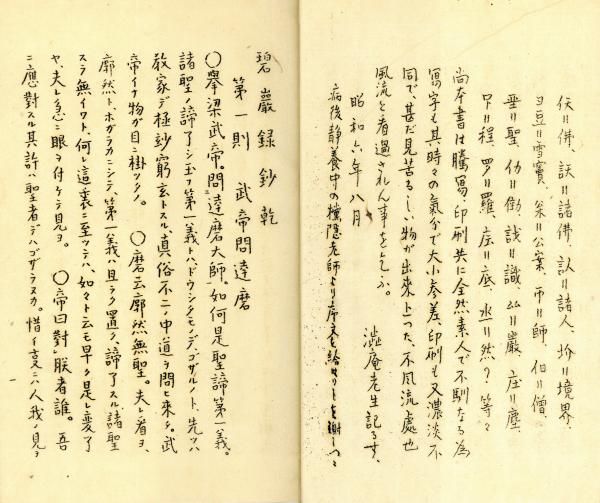 伏〢佛、䛀〢諸佛、訤〢諸人、圿〢境界、
ヨ豆〢雪竇、𠔥〢公案、帀〢師、伯〢僧、
垩〢聖、仂〢働、䛊〢識、𡶒〢巖、庄〢塵、
早〢程、罗〢羅、㡳〢底、氺〢然ノ、等々
尚本書は謄寫、印刷共に全然素人で不馴なる為
寫字も其時々の氣分で大小参差、印刷も又濃淡不
同で、甚だ見苦るしい物が出來上つた、不風流處也
風流と看過されん事を乞ふ。
昭和六年八月
澁庵先生記るす、
病後静養中の機隠老師より序文を給はりしを謝しつゝ
碧巖録鈔乾
第一則 武帝問達磨
〇擧梁武帝。問達磨大師。如何是聖諦第一義。
諸聖ノ諦了シ玉フ第一義トハ、ドウシタモノデゴザルノト、先ツハ
教家デ極玅窮玄トスル、真俗不二ノ中道ヲ問ヒ來タ。武
帝イナ物が目ニ掛ツタノ。 〇磨云廓然無聖。夫レ看ヨ、
廓然ト、ホガラカニシテ、第一義ハ且ラク置ク、諦了スル諸聖
スラ無イワト、何ン這裏ニ至ツテハ、如々ト云モ早ク是レ変了
ヤ、夫レ急ニ眼ヲ付ケテ見ヨ。 〇帝曰對朕者誰。吾
ニ應對スル其許ハ聖者デハゴザラヌカ。惜イ㕝ニハ人我ノ見ヲ